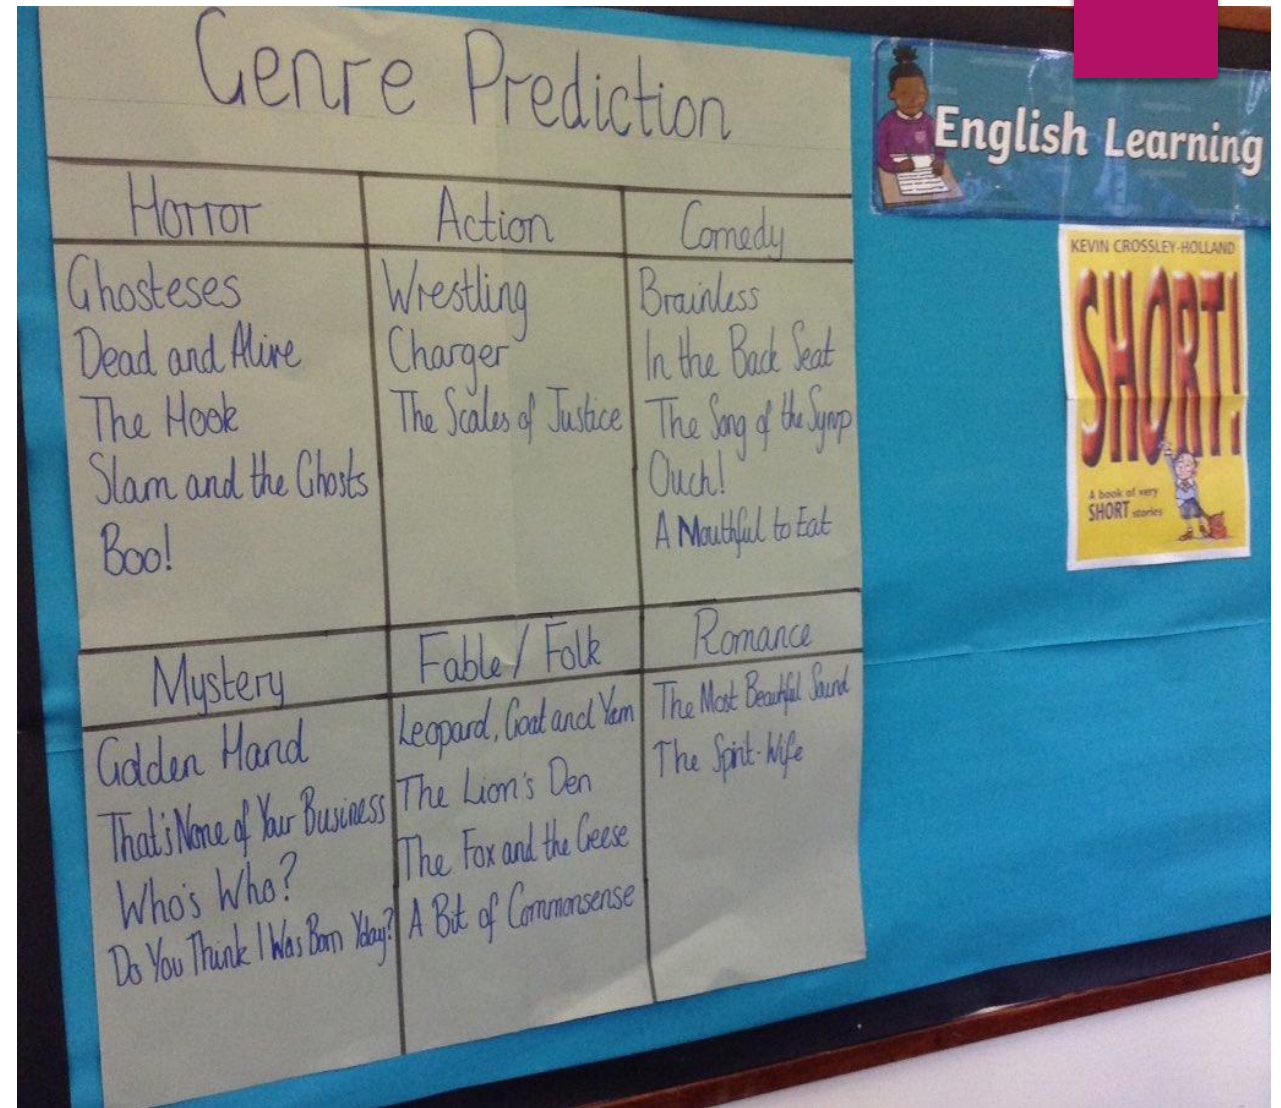 Genre Prediction
Horror
Ghosteses
Dead and Alive
The Hook
Slam and the Ghosts
Boo!
Action
Wrestling
Charger
The Scales of Justice
Comedy
Brainless
In the Back Seat
The Song of the Syrup
Ouch!
A Mouthful to Eat
Mystery
Golden Hand
That's None of Your Business
Who's Who?
Do You Think I Was Born Yday?
Fable / Folk
Leopard, Goat and Yam
The Lion's Den
The Fox and the Geese
A Bit of Commonsense
Romance
The Most Beautiful Sound
The Spirit-Wife
English Learning
KEVIN CROSSLEY-HOLLAND
SHORT!
A book of very
SHORT stories